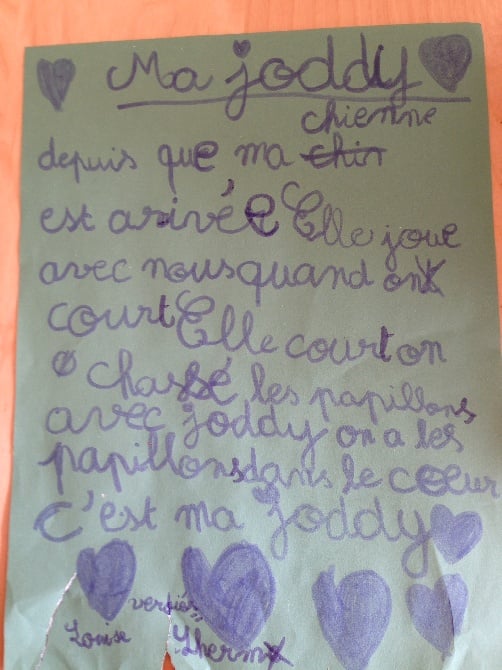 Ma joddy
chienne
depuis que ma chin
est arivée Elle joue
avec nous quand on
court Elle court on
chassé les papillons
avec joddy on a les
papillons dans le coeur
c'est ma joddy
Louise